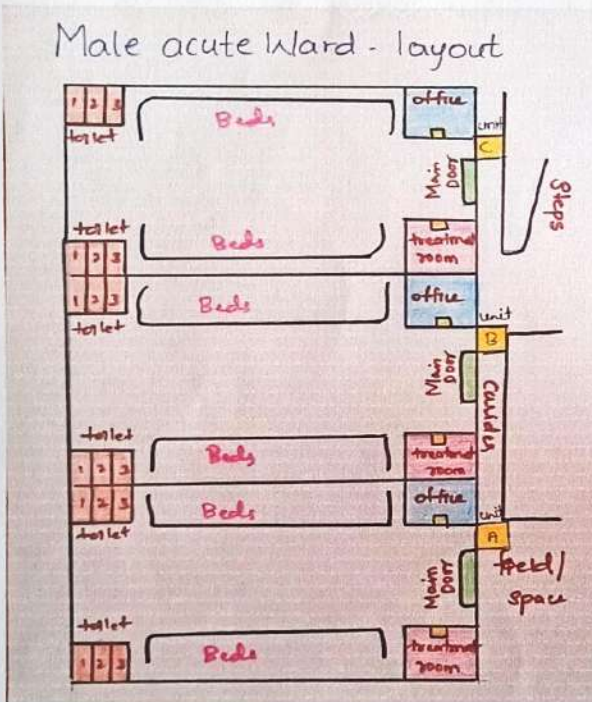 Male acute Ward - layout
1 2 3
toilet
Beds
office
unit
C
Main
Door
Steps
toilet
1 2 3
Beds
treatmet
room
1 2 3
toilet
Beds
office
unit
B
Main
Door
Coulder
toilet
1 2 3
Beds
treatmet
room
1 2 3
toilet
Beds
office
unit
A
Main
Door
field/
space
toilet
1 2 3
Beds
treatmet
room